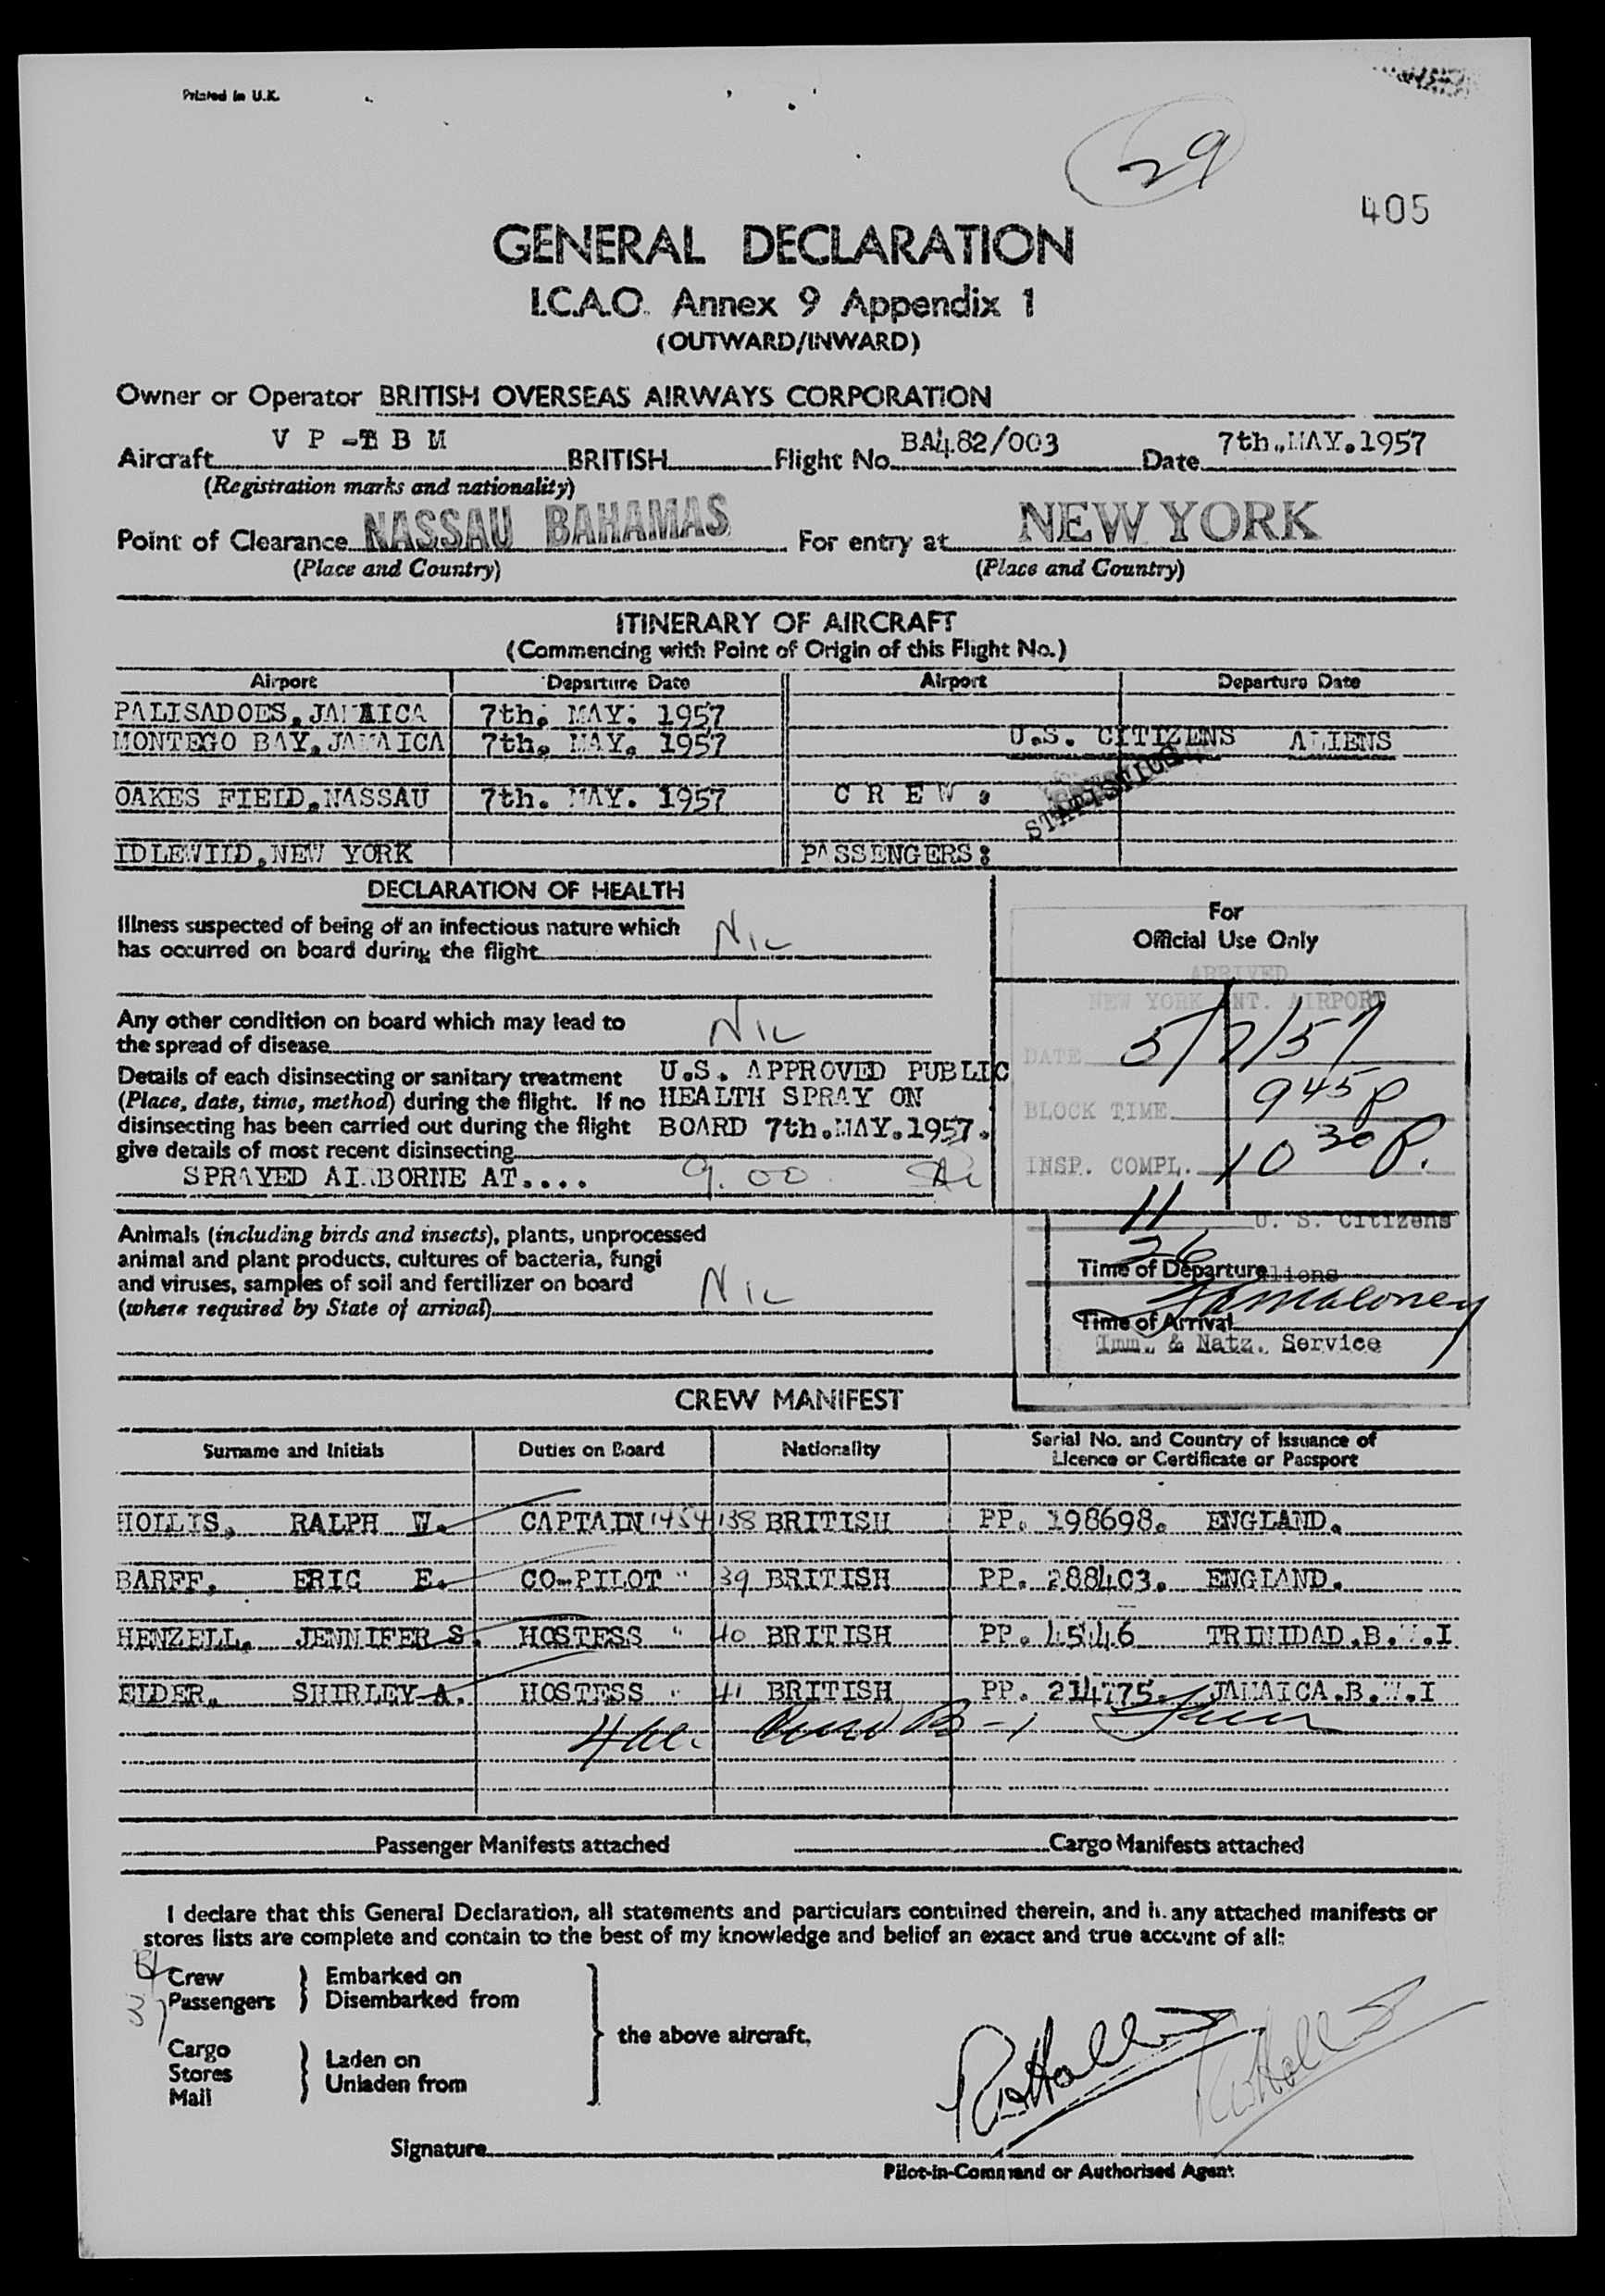 Printed in U.K.
29
405
GENERAL DECLARATION
I.C.A.O. Annex 9 Appendix 1
(OUTWARD/INWARD)
Owner or Operator BRITISH OVERSEAS AIRWAYS CORPORATION
Aircraft V P - B M BRITISH Flight No. BA482/003 Date 7th.MAY.1957
(Registration marks and nationality)
Point of Clearance NASSAU BAHAMAS For entry at NEW YORK
(Place and Country) (Place and Country)
ITINERARY OF AIRCRAFT
(Commencing with Point of Origin of this Flight No.)
Airport Departure Date Airport Departure Date
PALISADOES, JAMAICA 7th. MAY. 1957
MONTEGO BAY, JAMAICA 7th. MAY. 1957 U.S. CITIZENS ALIENS
OAKES FIELD, NASSAU 7th. MAY. 1957 C R E W :
IDLEWILD, NEW YORK PASSENGERS:
DECLARATION OF HEALTH
Illness suspected of being of an infectious nature which
has occurred on board during the flight NIL
Any other condition on board which may lead to
the spread of disease NIL
Details of each disinsecting or sanitary treatment U.S. APPROVED PUBLIC
(Place, date, time, method) during the flight. If no HEALTH SPRAY ON
disinsecting has been carried out during the flight BOARD 7th.MAY.1957.
give details of most recent disinsecting
SPRAYED AIRBORNE AT.... 9.00
For
Official Use Only
ARRIVED
NEW YORK INT. AIRPORT
DATE 5/7/57
BLOCK TIME 945 P
INSP. COMPL. 10 30 P.
11 U. S. Citizens
26 Aliens
Time of Departure
Time of Arrival
Imm. & Natz. Service
Animals (including birds and insects), plants, unprocessed
animal and plant products, cultures of bacteria, fungi
and viruses, samples of soil and fertilizer on board
(where required by State of arrival) NIL
CREW MANIFEST
Surname and Initials Duties on Board Nationality Serial No. and Country of Issuance of
Licence or Certificate or Passport
HOLLIS, RALPH W. CAPTAIN 1454138 BRITISH PP. 198698. ENGLAND.
BARFF, ERIC E. CO-PILOT " 39 BRITISH PP. 288403. ENGLAND.
HENZELL, JENNIFER S. HOSTESS " 40 BRITISH PP. 4546 TRINIDAD.B.W.I
ELDER, SHIRLEY A. HOSTESS " 41 BRITISH PP. 214775. JAMAICA.B.W.I
Passenger Manifests attached Cargo Manifests attached
I declare that this General Declaration, all statements and particulars contained therein, and in any attached manifests or
stores lists are complete and contain to the best of my knowledge and belief an exact and true account of all:
Crew Embarked on
37 Passengers Disembarked from
the above aircraft.
Cargo Laden on
Stores Unladen from
Mail
Signature
Pilot-in-Command or Authorised Agent